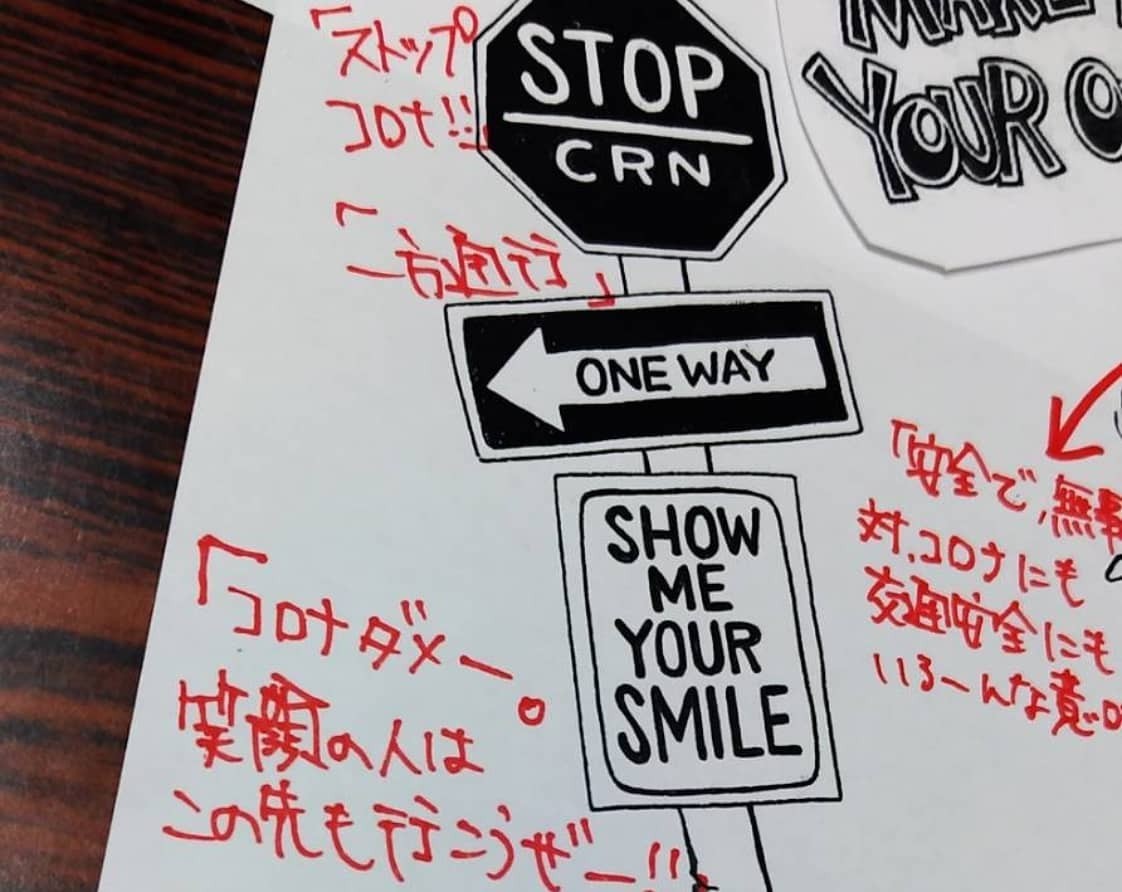 「ストップ
コロナ!!
STOP
CRN
YOUR
「一方通行」
ONE WAY
「安全で、無事
対、コロナにも
交通安全にも
いろーんな意
SHOW
ME
YOUR
SMILE
「コロナダメー。
笑顔の人は
この先も行こうぜー!!」